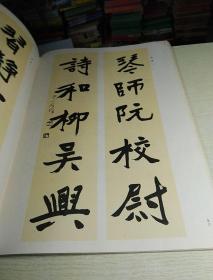 琴師阮校尉
詩和柳吳興